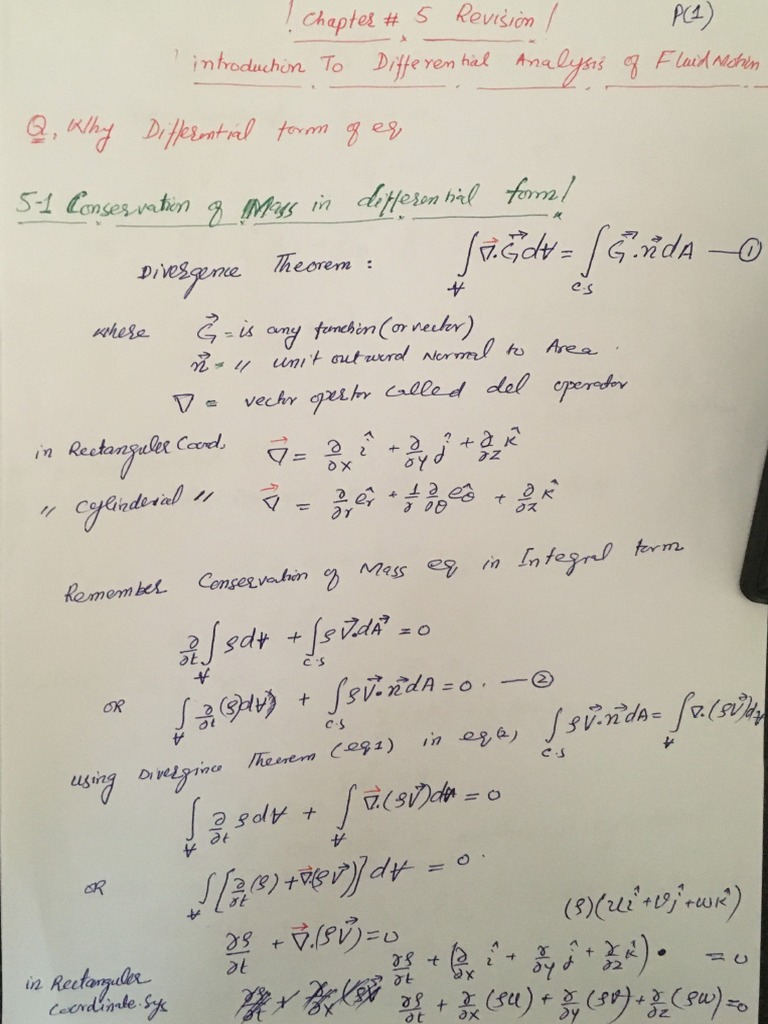 ! Chapter # 5 Revision ! P(1)
introduction To Differential Analysis of Fluid Motion
Q, Why Differential form of eq
5-1 Conservation of Mass in differential form!
Divergence Theorem : ∫_∀ ∇⃗.G⃗ d∀ = ∫_c.s G⃗.n⃗ dA — ①
where G⃗ = is any function (or vector)
n⃗ = " unit outword Normal to Area .
∇ = vector opertor called del operador
in Rectanguler Coord, ∇⃗ = ∂/∂x î + ∂/∂y ĵ + ∂/∂z k̂
" Cylinderial " ∇⃗ = ∂/∂r êr + 1/r ∂/∂θ êθ + ∂/∂z k̂
Remember Conservation of Mass eq in Integral form
∂/∂t ∫_∀ ρd∀ + ∫_c.s ρV⃗.dA⃗ = 0
OR ∫_∀ ∂/∂t (ρ)d∀ + ∫_c.s ρV⃗.n⃗ dA = 0 . — ②
using Divergince Theorem (eq1) in eq(2), ∫_c.s ρV⃗.n⃗ dA = ∫_∀ ∇.(ρV⃗)d∀
∫_∀ ∂/∂t ρd∀ + ∫_∀ ∇⃗.(ρV⃗)d∀ = 0
OR ∫_∀ [∂/∂t (ρ) + ∇⃗.(ρV⃗)] d∀ = 0 .
∂ρ/∂t + ∇⃗.(ρV⃗) = 0
(ρ)(uî + vĵ + wk̂)
in Rectanguler ∂ρ/∂t + (∂/∂x î + ∂/∂y ĵ + ∂/∂z k̂) • = 0
Coordinate.Sys ∂ρ/∂t + ∂/∂x (ρu) + ∂/∂y (ρv) + ∂/∂z (ρw) = 0